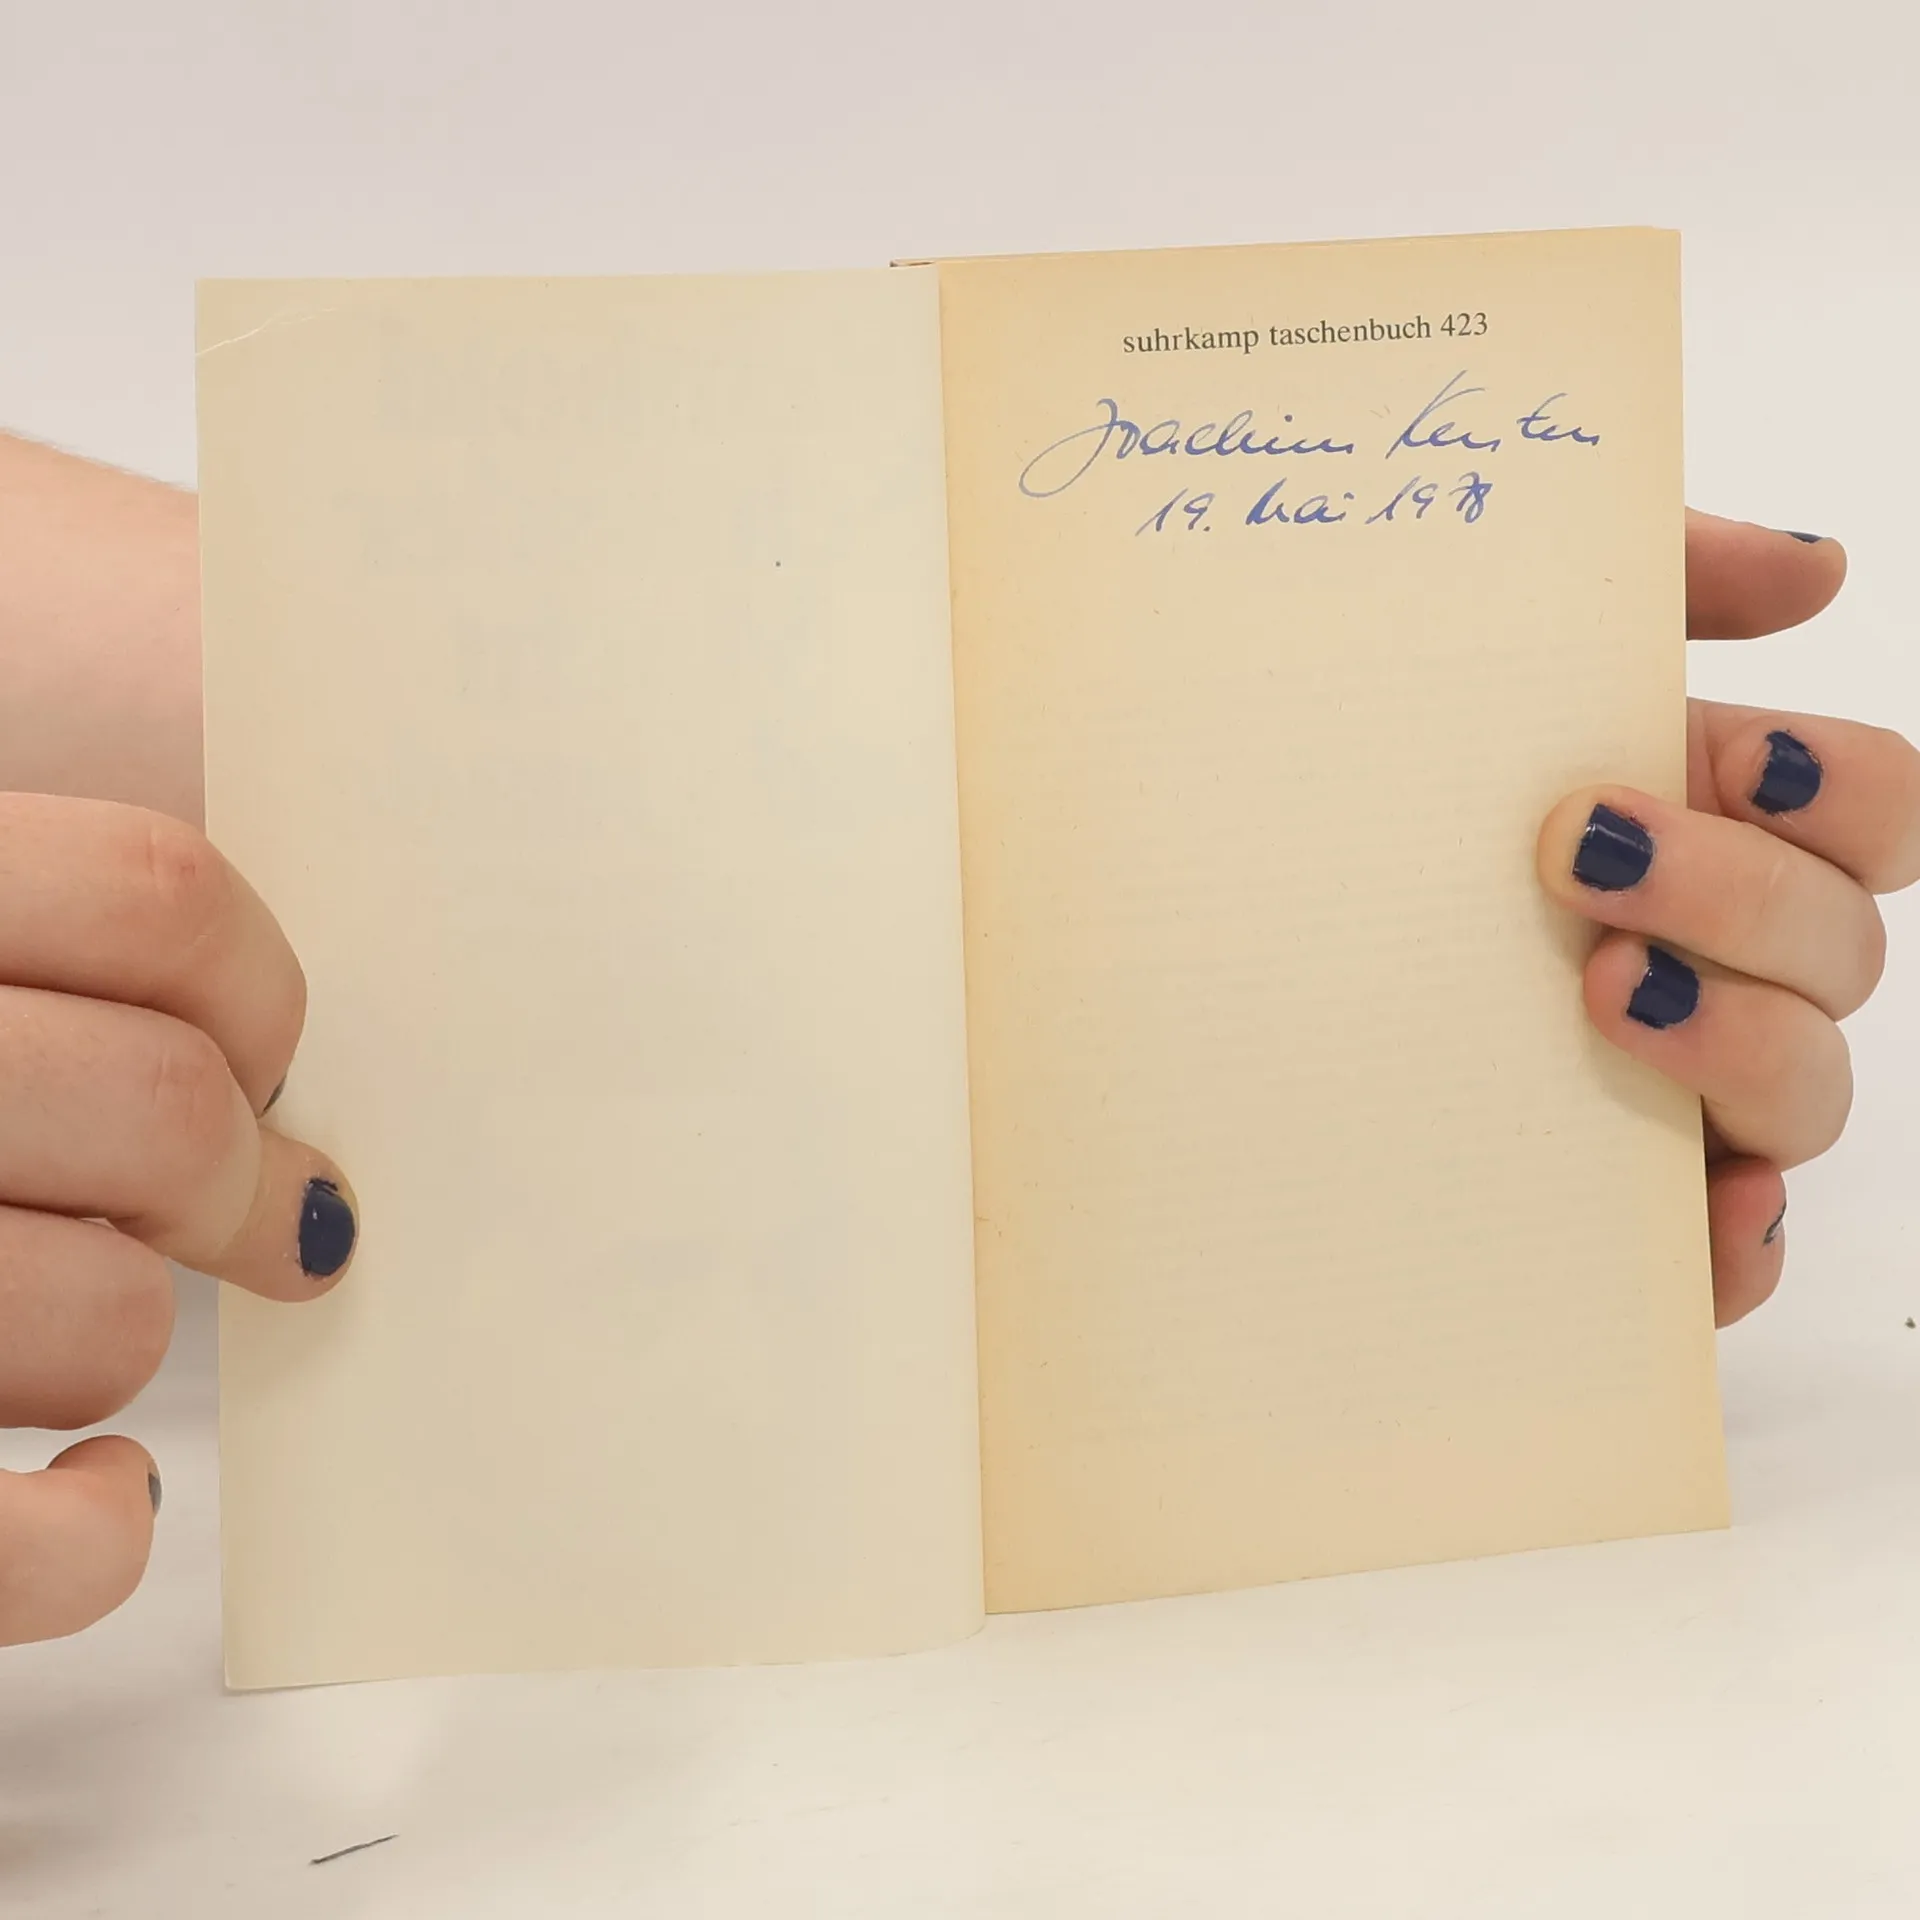 suhrkamp taschenbuch 423
Joachim Kersten
19. Mai 1978